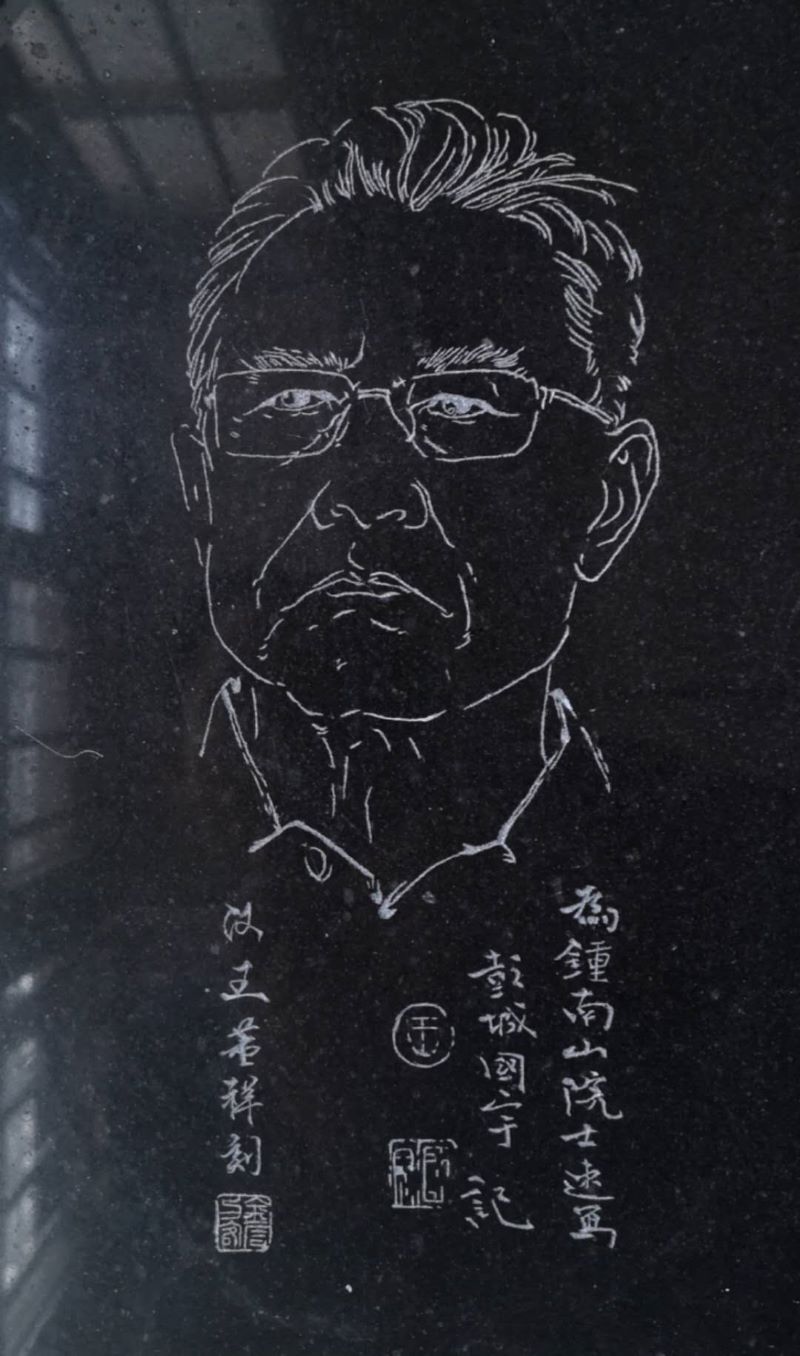 為鍾南山院士速画
彭城國宇 記
王
汉王黄祥刻